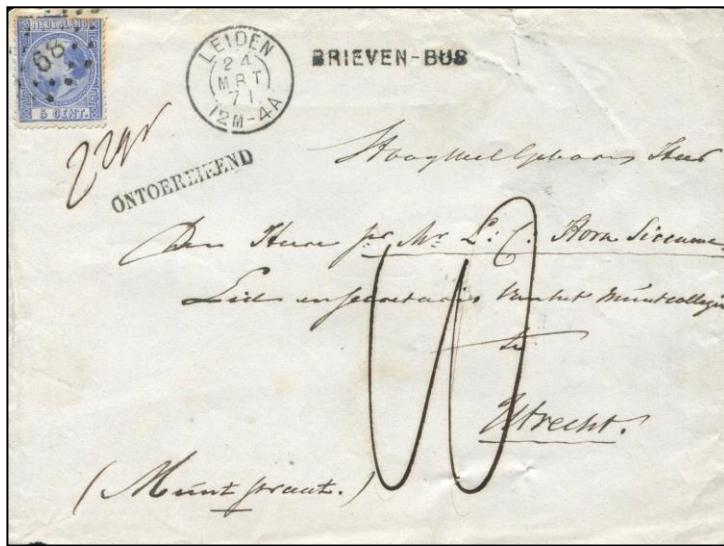 NEDERLAND
68
5 CENT.
LEIDEN
24
MRT
71
12M-4A
BRIEVEN-BUS
ONTOEREIKEND
Hoog Heer
Den Heere Mr L: C. Horn
Lid en Secretaris van het Muntcollegie
te
Utrecht.
(Munt straat.)
10